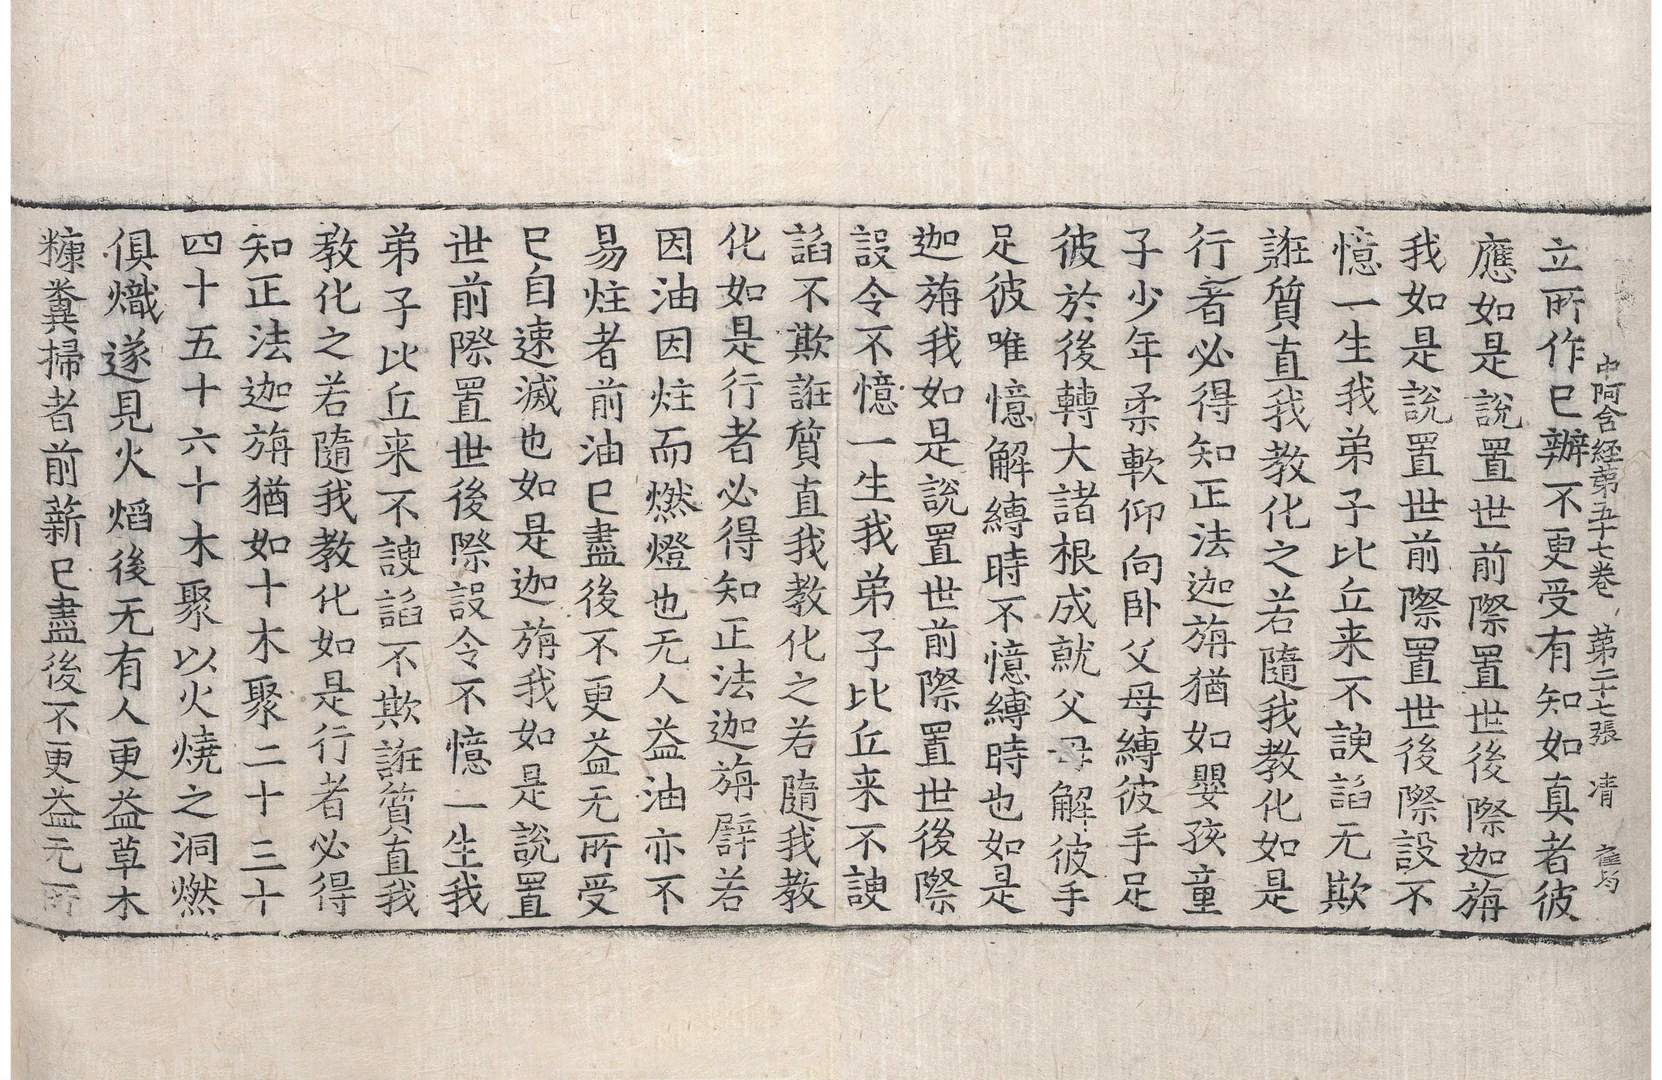 中阿含経第五十七巻 第二十七張 清
立所作已辦不更受有知如真者彼
應如是說置世前際置世後際迦旃
我如是說置世前際置世後際設不
憶一生我弟子比丘来不諛諂无欺
誑質直我教化之若隨我教化如是
行者必得知正法迦旃猶如嬰孩童
子少年柔軟仰向卧父母縛彼手足
彼於後轉大諸根成就父母解彼手
足彼唯憶解縛時不憶縛時也如是
迦旃我如是說置世前際置世後際
設令不憶一生我弟子比丘来不諛
諂不欺誑質直我教化之若隨我教
化如是行者必得知正法迦旃譬若
因油因炷而燃燈也无人益油亦不
易炷者前油已盡後不更益无所受
已自速滅也如是迦旃我如是說置
世前際置世後際設令不憶一生我
弟子比丘来不諛諂不欺誑質直我
教化之若隨我教化如是行者必得
知正法迦旃猶如十木聚二十三十
四十五十六十木聚以火燒之洞燃
俱熾遂見火焰後无有人更益草木
糠糞掃者前薪已盡後不更益无所